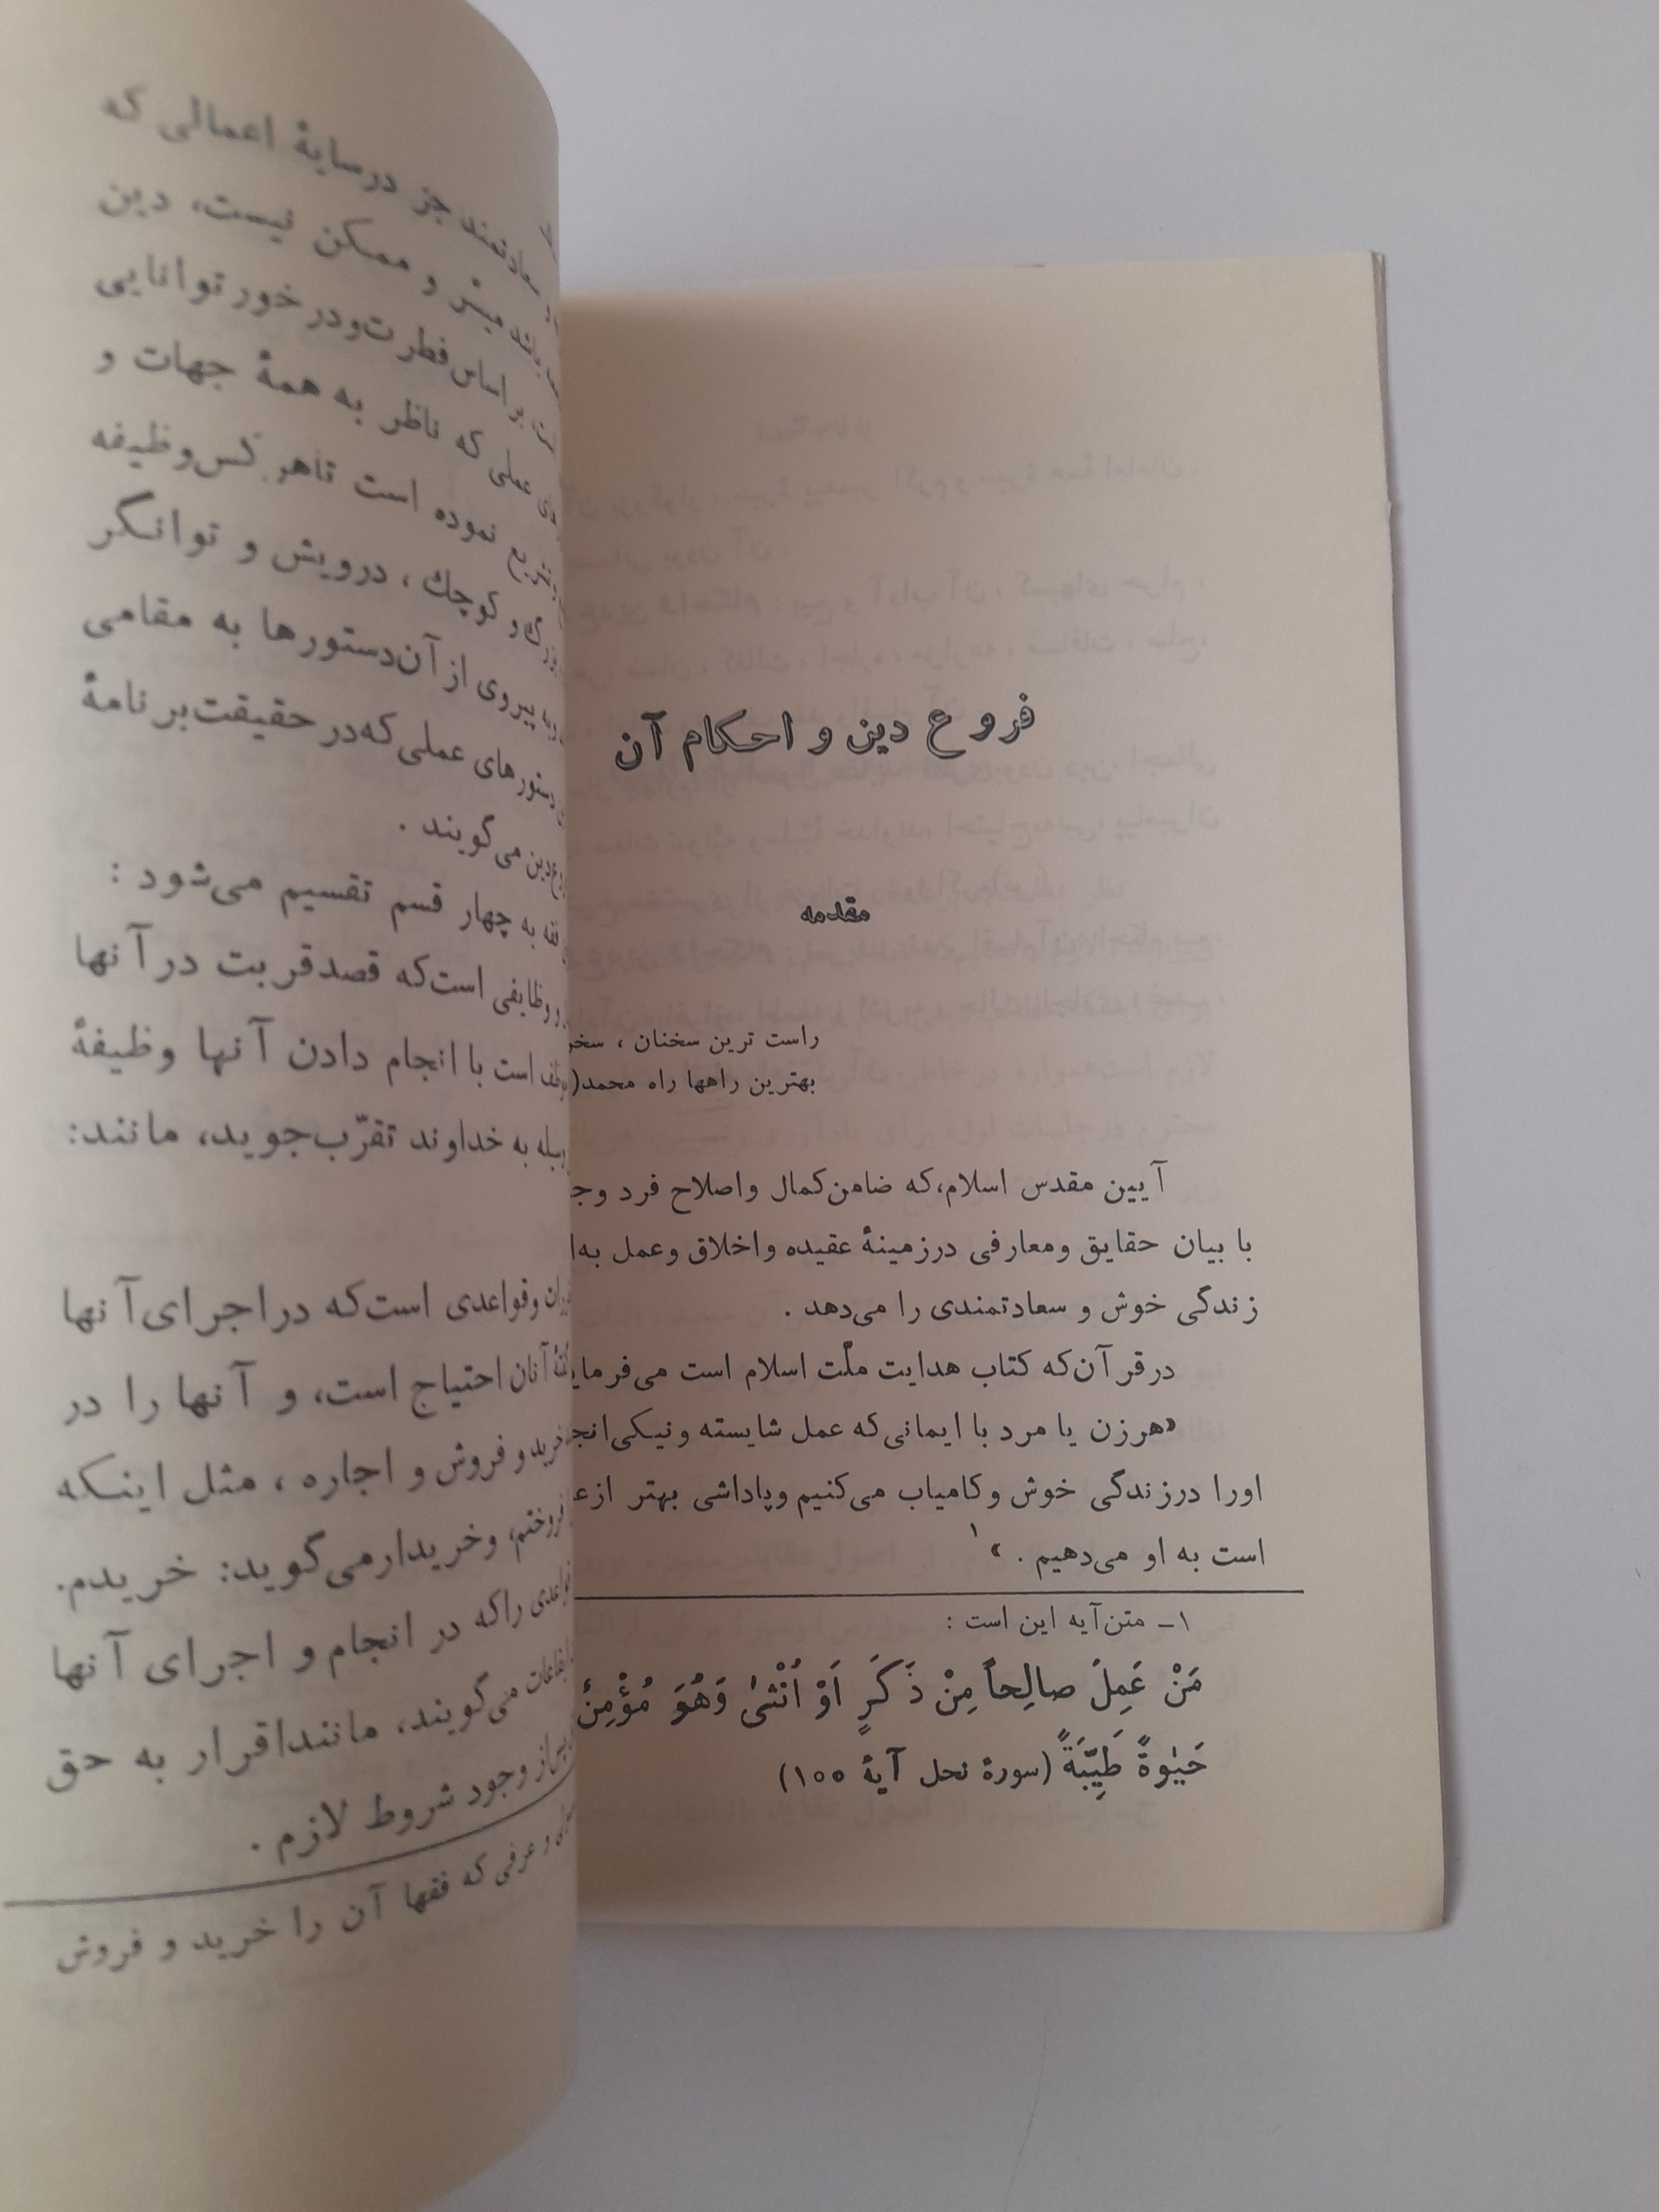 فروع دین و احکام آن
مقدمه
راست ترین سخنان ، سخن
بهترین راهها راه محمد(
آیین مقدس اسلام،که ضامن‌کمال واصلاح فرد وج
با بیان حقایق ومعارفی درزمینهٔ عقیده واخلاق وعمل به
زندگی خوش و سعادتمندی را می‌دهد .
درقرآن‌که کتاب هدایت ملّت اسلام است می‌فرماید
«هرزن یا مرد با ایمانی‌که عمل شایسته ونیکی‌انج
اورا درزندگی خوش وکامیاب می‌کنیم وپاداشی بهتر از
است به او می‌دهیم . »۱
۱ـ متن‌آیه این است :
مَنْ عَمِلَ صالِحاً مِنْ ذَكَرٍ اَوْ اُنْثىٰ وَهُوَ مُؤْمِنٌ
حَيٰوةً طَيِّبَةً (سورهٔ نحل آیهٔ ۱۰۰)
سعادتمند جز درسایهٔ اعمالی که
باشد میسّر و ممکن نیست، دین
براساس‌فطرت‌ودرخورتوانایی
عملی که ناظر به همهٔ جهات و
نموده است تاهر کس‌وظیفه
و کوچك ، درویش و توانگر
پیروی ازآن‌دستورها به مقامی
دستورهای عملی‌که‌درحقیقت‌برنامهٔ
دین می‌گویند .
فقه به چهار قسم تقسیم می‌شود :
وظایفی است‌که قصدقربت درآنها
است با انجام دادن آنها وظیفهٔ
به خداوند تقرّب‌جوید، مانند:
وقواعدی است‌که دراجرای‌آنها
آنان احتیاج است، و آنها را در
خرید و فروش و اجاره ، مثل اینکه
فروختم، وخریدارمی‌گوید: خریدم.
راکه در انجام و اجرای آنها
می‌گویند، ماننداقرار به حق
وجود شروط لازم .
و عرفی که فقها آن را خرید و فروش